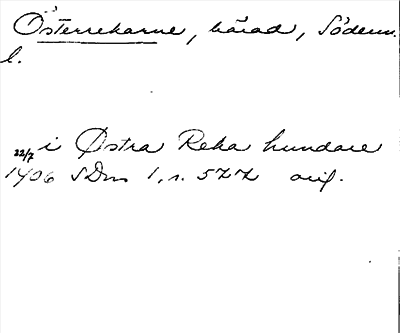 Österrekarne, härad, Söderm.
l.
22/7 i Østra Reka hundare
1406 SDns 1, s. 577 orig.